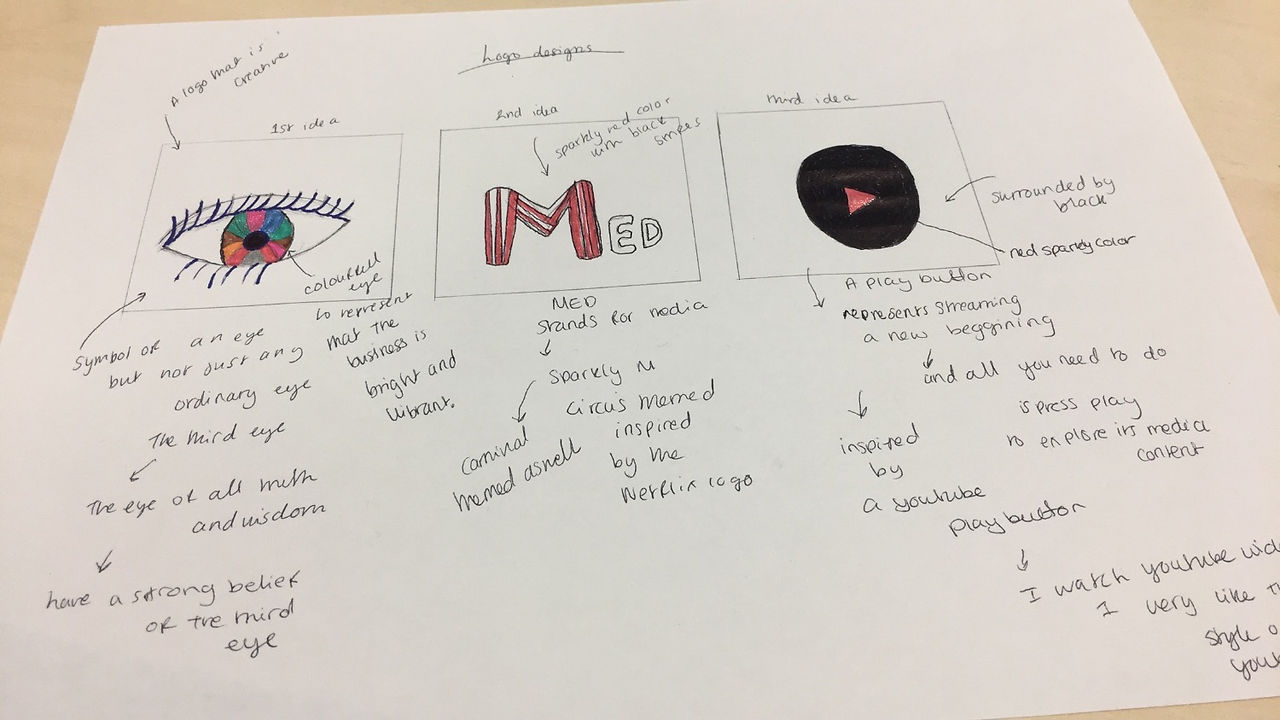 Logo designs
A logo that is
creative
1st idea
colourfull
eye
to represent
that the
business is
bright and
vibrant.
Symbol of an eye
but not just any
ordinary eye
The third eye
The eye of all truth
and wisdom
have a strong belief
of the third
eye
2nd idea
sparkly red color
with black
stripes
MED
MED
stands for media
Sparkly M
circus themed
inspired
by the
Netflix logo
carnival
themed aswell
third idea
surrounded by
black
red sparkly color
A play button
represents streaming
a new beggining
and all you need to do
is press play
to explore its media
content
inspired
by
a youtube
play button
I watch youtube
I very like
style